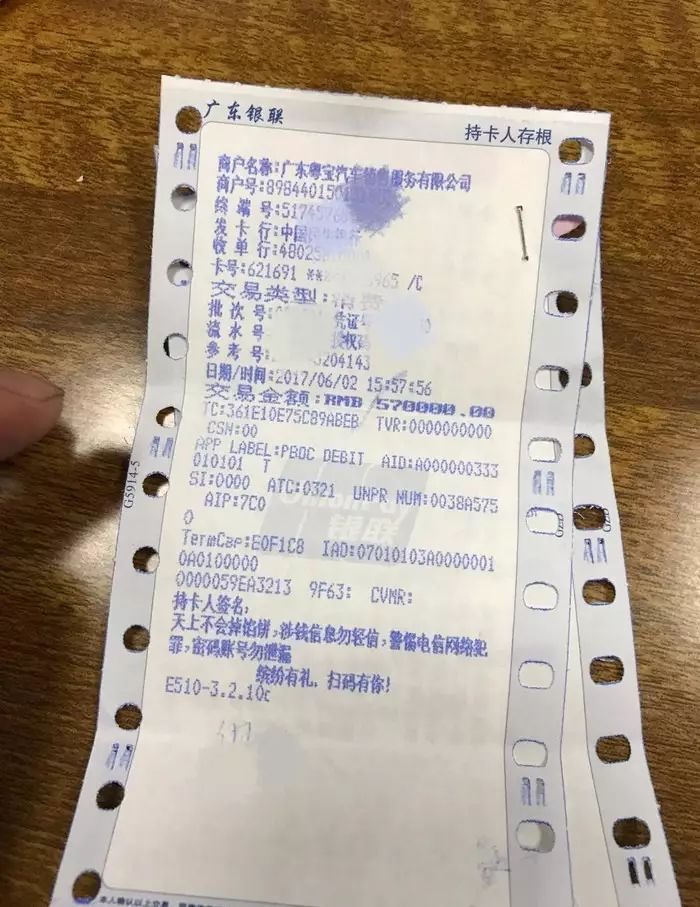 广东银联
持卡人存根
商户名称:广东粤宝汽车销售服务有限公司
商户号:898440150
终 端 号:517457
发 卡 行:中国民生银行
收 单 行:48025
卡号:621691 ** 5965 /C
交易类型:消费
批 次 号: 凭证号
流 水 号 授权码
参 考 号: 204143
日期/时间:2017/06/02 15:57:56
交易金额:RMB 570000.00
TC:361E10E75C89ABEB TVR:0000000000
CSN:00
APP LABEL:PBOC DEBIT AID:A000000333
010101 T
SI:0000 ATC:0321 UNPR NUM:0038A575
AIP:7C0
0
TermCap:E0F1C8 IAD:07010103A0000001
0A0100000
0000059EA3213 9F63: CVMR:
持卡人签名,
天上不会掉馅饼,涉钱信息勿轻信,警惕电信网络犯
罪,密码账号勿泄漏
缤纷有礼,扫码有你!
E510-3.2.10c
G5914-5
银联
本人确认以上交易